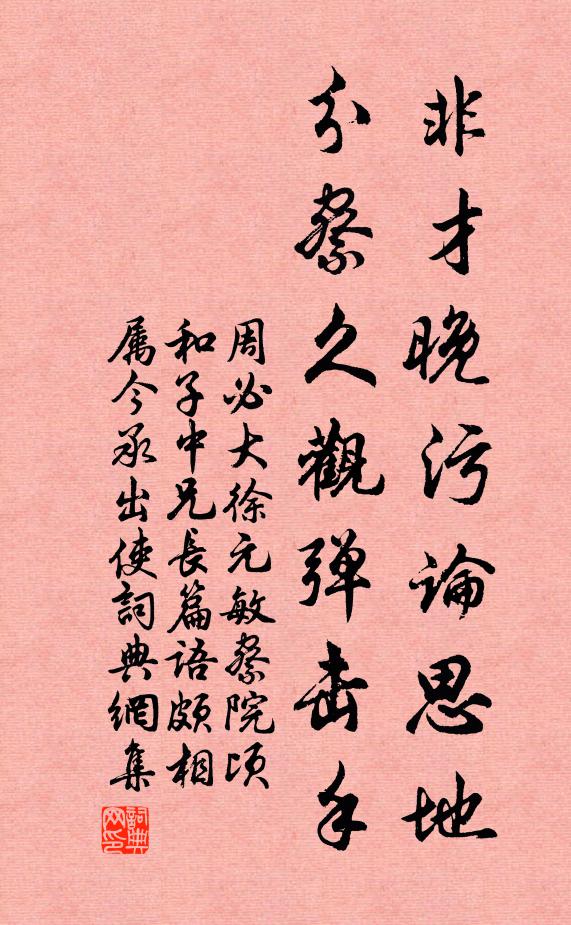 非才晚污論思地
分察久觀弹击手
周必大徐元敏察院頃
和子中兄長篇語頗相
属今承出使詞典網集
詞典网印